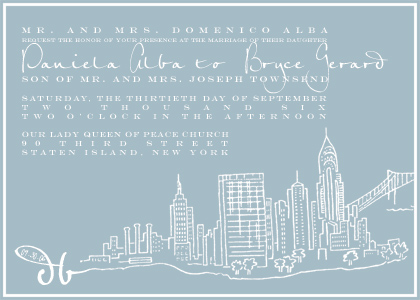 MR. AND MRS. DOMENICO ALBA
REQUEST THE HONOR OF YOUR PRESENCE AT THE MARRIAGE OF THEIR DAUGHTER
Daniela Alba to Bryce Gerard
SON OF MR. AND MRS. JOSEPH TOWNSEND
SATURDAY, THE THIRTIETH DAY OF SEPTEMBER
TWO THOUSAND SIX
TWO O'CLOCK IN THE AFTERNOON
OUR LADY QUEEN OF PEACE CHURCH
90 THIRD STREET
STATEN ISLAND, NEW YORK